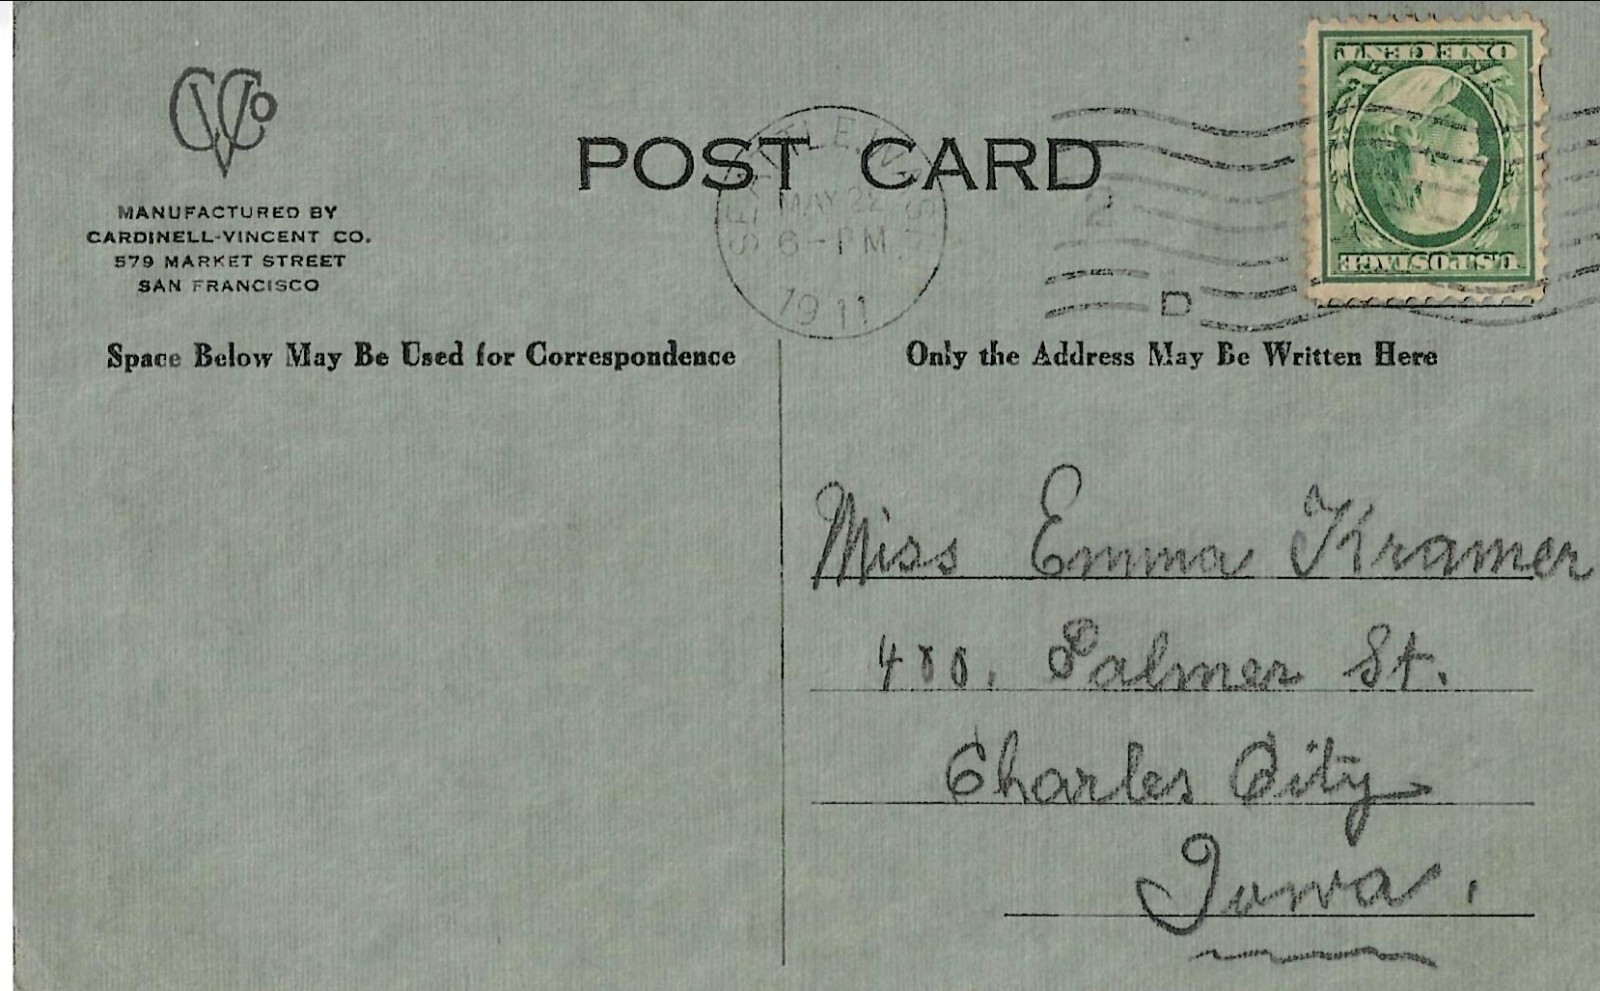 CVCo
MANUFACTURED BY
CARDINELL-VINCENT CO.
579 MARKET STREET
SAN FRANCISCO
POST CARD
SEATTLE, WASH.
MAY 22
6-PM
1911
2
D
ONE CENT
U.S. POSTAGE
Space Below May Be Used for Correspondence
Only the Address May Be Written Here
Miss Emma Kramer
400. Palmer St.
Charles City
Iowa.